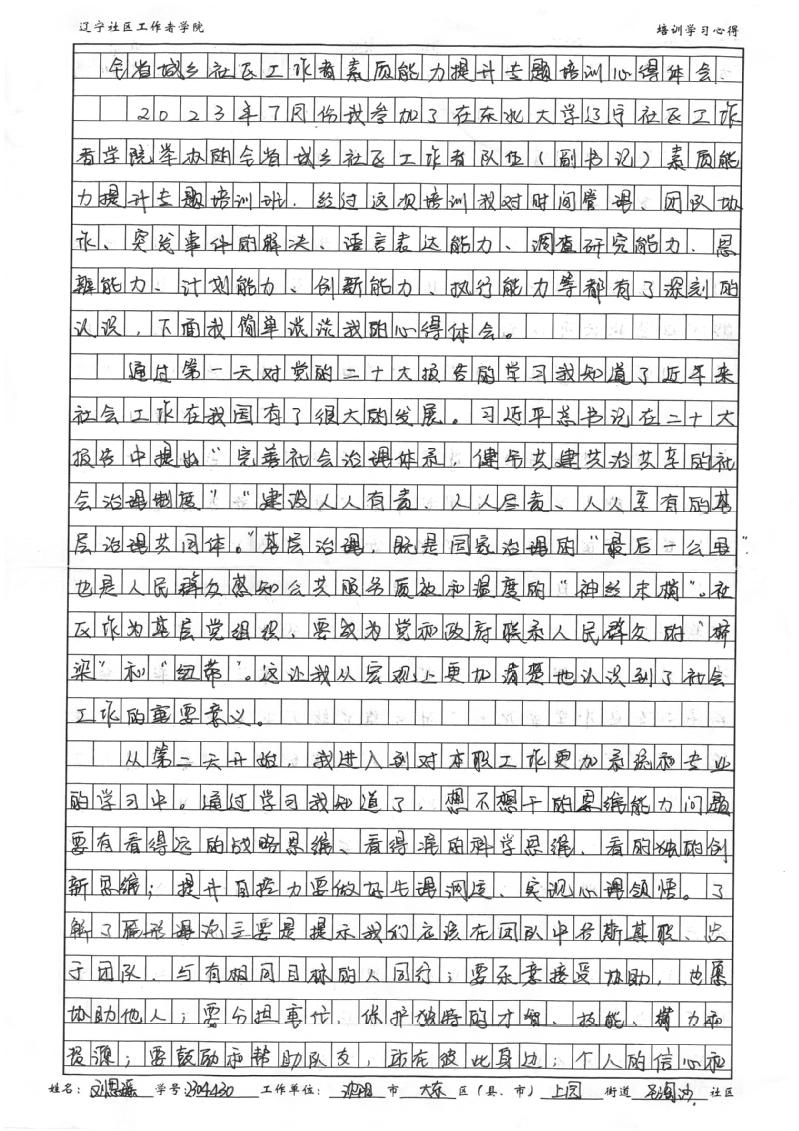 辽宁社区工作者学院 培训学习心得
全省城乡社区工作者素质能力提升专题培训心得体会.
2023年7月份我参加了在东北大学辽宁社区工作
者学院举办的全省城乡社区工作者队伍(副书记)素质能
力提升专题培训班.经过这次培训我对时间管理、团队协
作、突发事件的解决、语言表达能力、调查研究能力、思
辨能力、计划能力、创新能力、执行能力等都有了深刻的
认识,下面我简单谈谈我的心得体会。
通过第一天对党的二十大报告的学习我知道了近年来
社会工作在我国有了很大的发展。习近平总书记在二十大
报告中提出“完善社会治理体系,健全共建共治共享的社
会治理制度”“建设人人有责、人人尽责、人人享有的基
层治理共同体。”基层治理,既是国家治理的“最后一公里”
也是人民群众感知公共服务质效和温度的“神经末梢”。社
区作为基层党组织、要成为党和政府联系人民群众的“桥
梁”和“纽带”。这让我从宏观上更加清楚地认识到了社会
工作的重要意义。
从第二天开始,我进入到对本职工作更加系统和专业
的学习中。通过学习我知道了,想不想干的思维能力问题
要有看得远的战略思维、看得准的科学思维、看的独的创
新思维;提升自控力要做好生理调适、实现心理领悟。了
解了雁形理论主要是提示我们应该在团队中各斯其职、忠
于团队、与有相同目标的人同行;要乐意接受协助,也愿
协助他人;要分担重忙、保护独特的才智、技能、精力和
资源;要鼓励和帮助队友,站在彼此身边;个人的信心和
姓名: 刘恩瑶 学号: 2304430 工作单位: 沈阳 市 大东 区(县、市) 上园 街道 社区